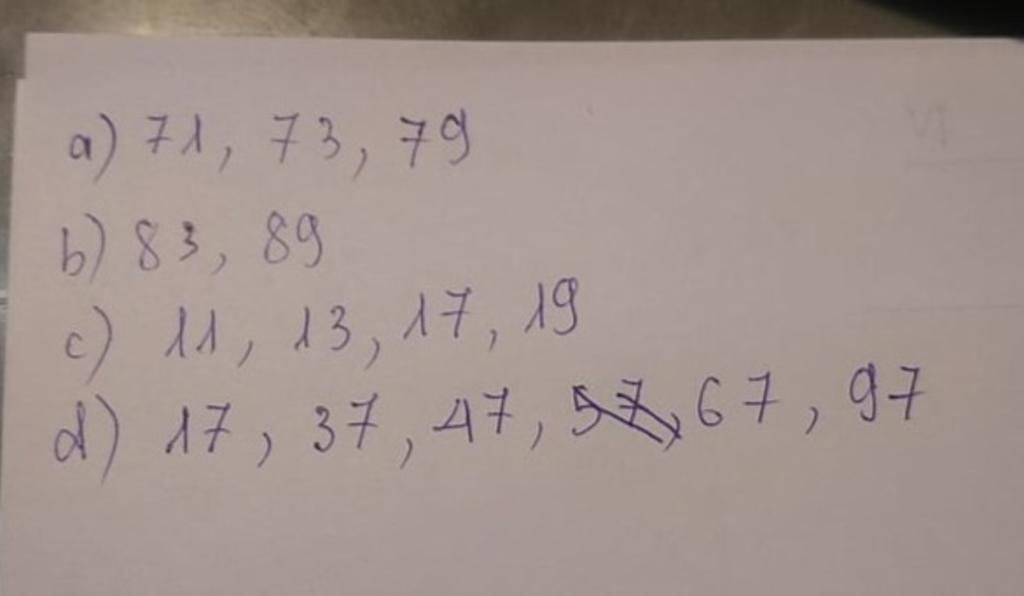 a) 71, 73, 79
b) 83, 89
c) 11, 13, 17, 19
d) 17, 37, 47, 57, 67, 97